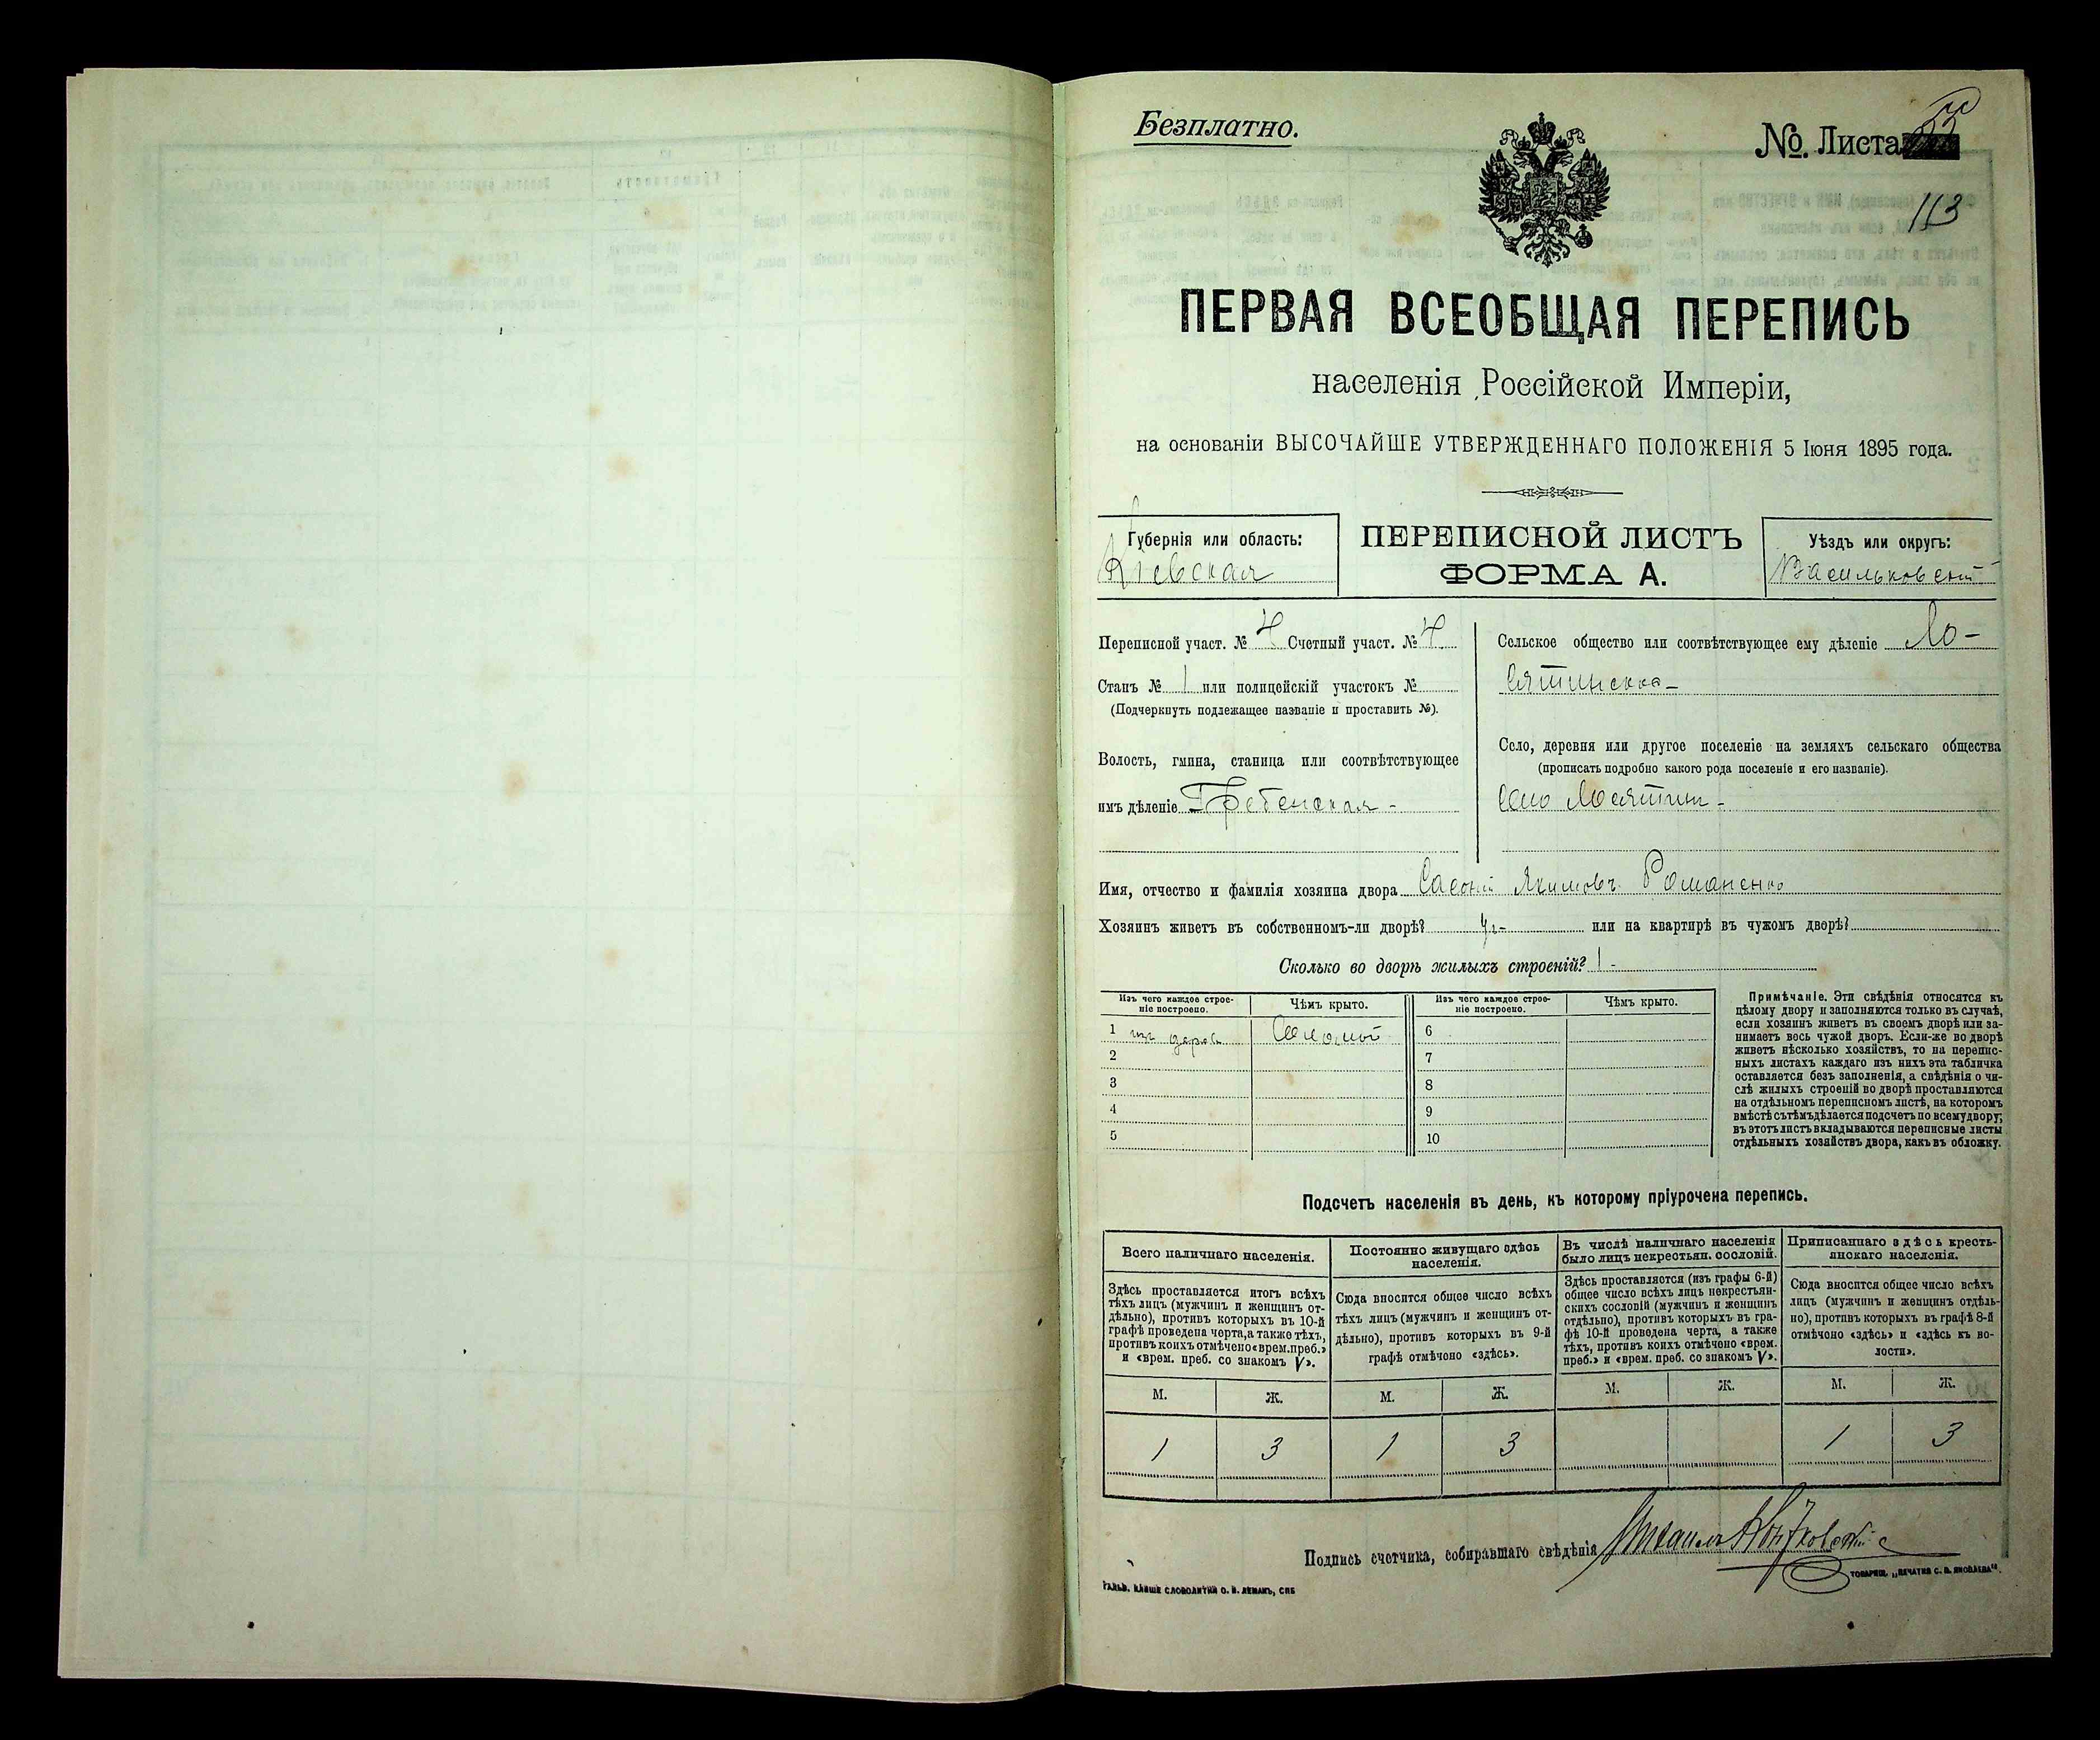 Безплатно.
№. Листа 55
113
ПЕРВАЯ ВСЕОБЩАЯ ПЕРЕПИСЬ
населенія Россійской Имперіи,
на основаніи ВЫСОЧАЙШЕ УТВЕРЖДЕННАГО ПОЛОЖЕНІЯ 5 Іюня 1895 года.
Губернія или область:
Кіевская
ПЕРЕПИСНОЙ ЛИСТЪ
ФОРМА А.
Уѣздъ или округъ:
Васильковскій
Переписной участ. № 4 Счетный участ. № 4
Станъ № 1 или полицейскій участокъ №
(Подчеркнуть подлежащее названіе и проставить №).
Волость, гмина, станица или соотвѣтствующее
имъ дѣленіе Гребенская -
Сельское общество или соотвѣтствующее ему дѣленіе Ло-
сятинское
Село, деревня или другое поселеніе на земляхъ сельскаго общества
(прописать подробно какого рода поселеніе и его названіе).
село Лосятин -
Имя, отчество и фамилія хозяина двора Якимовъ Романенко
Хозяинъ живетъ въ собственномъ-ли дворѣ? или на квартирѣ въ чужомъ дворѣ?
Сколько во дворѣ жилыхъ строеній? 1 -
Изъ чего каждое строе-
ніе построено.
Чѣмъ крыто.
Изъ чего каждое строе-
ніе построено.
Чѣмъ крыто.
1 изъ дерев. Соломой 6
2 7
3 8
4 9
5 10
Примѣчаніе. Эти свѣдѣнія относятся къ
цѣлому двору и заполняются только въ случаѣ,
если хозяинъ живетъ въ своемъ дворѣ или за-
нимаетъ весь чужой дворъ. Если-же во дворѣ
живетъ нѣсколько хозяйствъ, то на перепис-
ныхъ листахъ каждаго изъ нихъ эта табличка
оставляется безъ заполненія, а свѣдѣнія о чи-
слѣ жилыхъ строеній во дворѣ проставляются
на отдѣльномъ переписномъ листѣ, на которомъ
вмѣстѣ съ тѣмъ дѣлается подсчетъ по всему двору;
въ этотъ листъ вкладываются переписные листы
отдѣльныхъ хозяйствъ двора, какъ въ обложку.
Подсчетъ населенія въ день, къ которому пріурочена перепись.
Всего наличнаго населенія.
Здѣсь проставляется итогъ всѣхъ
тѣхъ лицъ (мужчинъ и женщинъ от-
дѣльно), противъ которыхъ въ 10-й
графѣ проведена черта, а также тѣхъ,
противъ коихъ отмѣчено «врем. преб.»
и «врем. преб. со знакомъ V».
Постоянно живущаго здѣсь
населенія.
Сюда вносится общее число всѣхъ
тѣхъ лицъ (мужчинъ и женщинъ от-
дѣльно), противъ которыхъ въ 9-й
графѣ отмѣчено «здѣсь».
Въ числѣ наличнаго населенія
было лицъ некрестьян. сословій.
Здѣсь проставляется (изъ графы 6-й)
общее число всѣхъ лицъ некрестьян-
скихъ сословій (мужчинъ и женщинъ
отдѣльно), противъ которыхъ въ гра-
фѣ 10-й проведена черта, а также
тѣхъ, противъ коихъ отмѣчено «врем.
преб.» и «врем. преб. со знакомъ V».
Приписаннаго здѣсь кресть-
янскаго населенія.
Сюда вносится общее число всѣхъ
лицъ (мужчинъ и женщинъ отдѣль-
но), противъ которыхъ въ графѣ 8-й
отмѣчено «здѣсь» и «здѣсь къ во-
лости».
М. Ж. М. Ж. М. Ж. М. Ж.
1 3 1 3 1 3
Подпись счетчика, собиравшаго свѣдѣнія Михаилъ
ГАЛЬВ. КЛИШЕ СЛОВОЛИТНИ О. И. ЛЕМАНЪ, СПБ
ТОВАРИЩ. „ПЕЧАТНЯ С. П. ЯКОВЛЕВА".